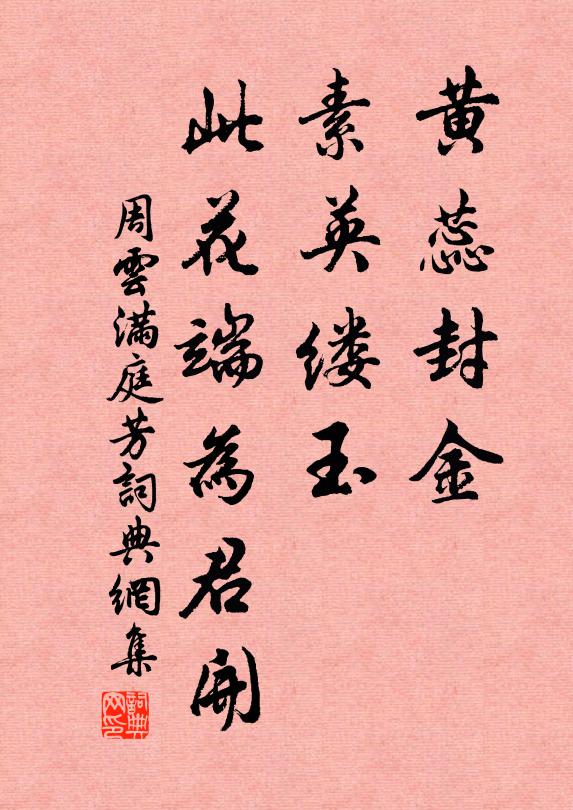 黄蕊封金
素英缕玉
此花端為君開
周雲滿庭芳詞典網集
詞典網印